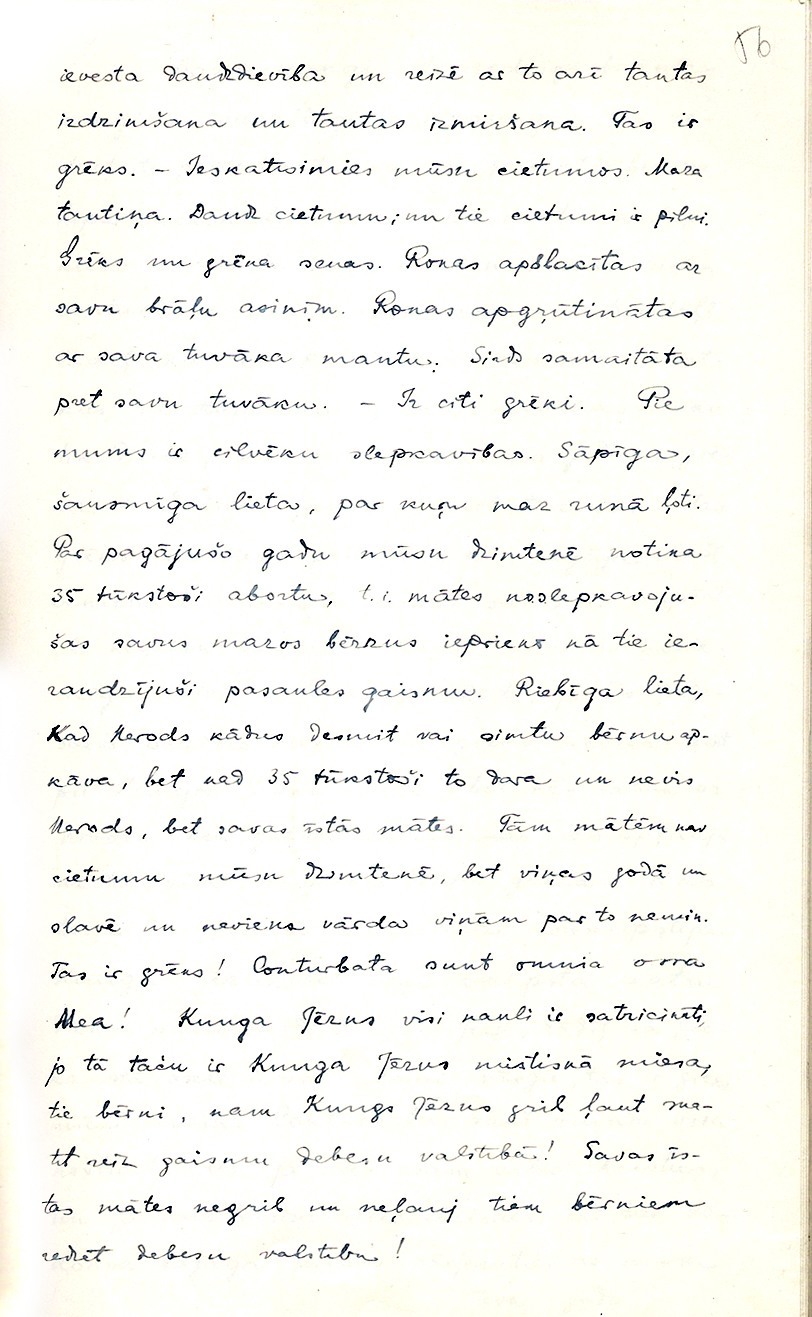 56
ievesta daudzdievība un reizē ar to arī tautas
izdzimšana un tautas izmiršana. Tas ir
grēks. – Ieskatīsimies mūsu cietumos. Maza
tautiņa. Daudz cietumu; un tie cietumi ir pilni.
Grēks un grēka sekas. Rokas apšļakstītas ar
savu brāļu asinīm. Rokas apgrūtinātas
ar sava tuvāka mantu. Sirds samaitāta
pret savu tuvāku. – Ir citi grēki. Pie
mums ir cilvēku slepkavības. Sāpīga,
šausmīga lieta, par kuŗu maz runā ļoti.
Par pagājušo gadu mūsu dzimtenē notika
35 tūkstoši abortu, t.i. mātes noslepkavoju-
šas savus mazos bērnus iepriens kā tie ie-
raudzījuši pasaules gaismu. Riebīga lieta,
Kad Herods kādus desmit vai simtu bērnu ap-
kāva, bet kad 35 tūkstoši to dara un nevis
Herods, bet savas īstās mātes. Tām mātēm nav
cietumu mūsu dzimtenē, bet viņas godā un
slavē un neviena vārda viņām par to nemin.
Tas ir grēks! Conturbata sunt omnia ossa
Mea! Kunga Jēzus visi kauli ir satricināti,
jo tā taču ir Kunga Jēzus mistiskā miesa,
tie bērni, kam Kungs Jēzus grib ļaut ska-
tīt reiz gaismu debesu valstībā! Savas īs-
tas mātes negrib un neļauj tiem bērniem
redzēt debesu valstību!